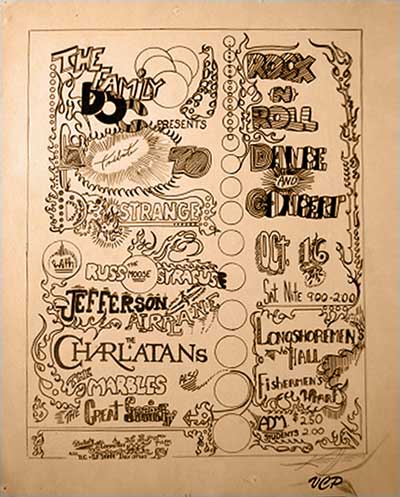 THE
FAMILY
DOG
PRESENTS
A
Tribute
TO
DR. STRANGE
With
RUSS THE MOOSE SYRACUSE
JEFFERSON
AIRPLANE
THE
CHARLATANS
THE
MARBLES
ALSO
THE Great Society
ROCK
N
ROLL
DANCE
AND
CONCERT
OCT. 16
Sat. Nite 9:00-2:00
LONGSHOREMEN'S
HALL
FISHERMEN'S
WHARF
ADM $2.50
STUDENTS 2.00
VCP